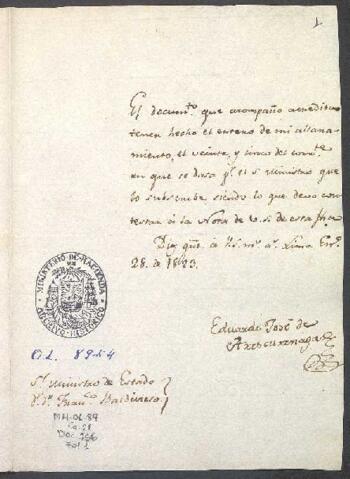 1
El docum.to que acompaño acredita
tener hecho el entero de mi allana-
miento, el veinte y cinco del corr.te
en que se dava p.r el S. Ministro que
lo subscribe siendo lo que devo con-
testar á la Nota de V.S. de esta fha
Dios gue. a VS. m.s a.s Lima En.o
28. de 1823.
Eduardo José de
Arescurenaga
MINISTERIO DE HACIENDA
ARCHIVO HISTORICO
O.L. 89-4
S.r Ministro de Estado
D.r D.n Fran.co Valdivieso
MH-OL 89
Ca. 21
Doc. 766
Fol 1